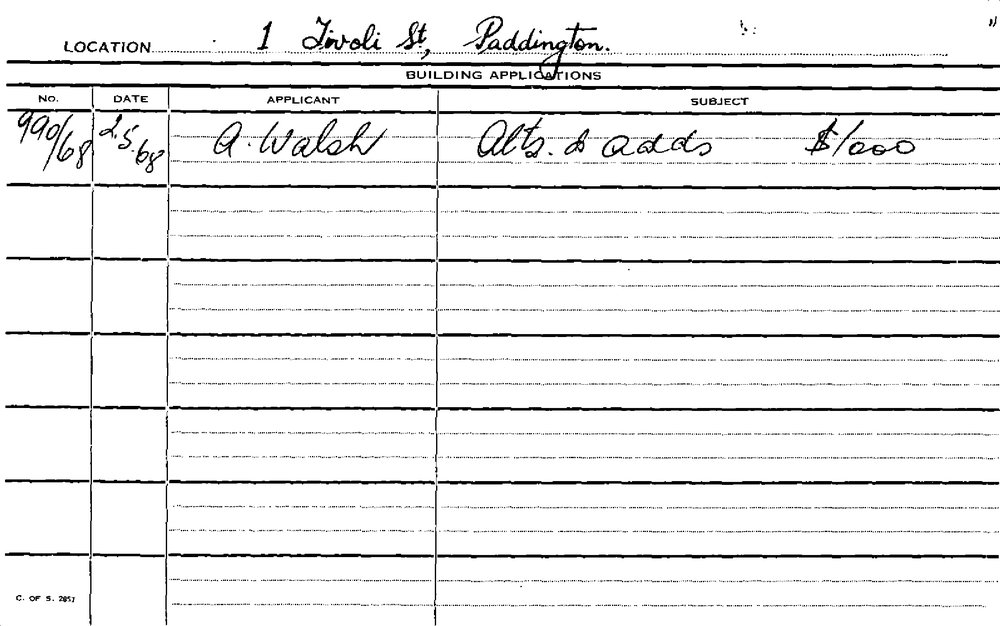 LOCATION 1 Tivoli St, Paddington.
BUILDING APPLICATIONS
No. DATE APPLICANT SUBJECT
990/68 2.5.68 A. Walsh Alts. & adds $1000
C. OF S. 2857